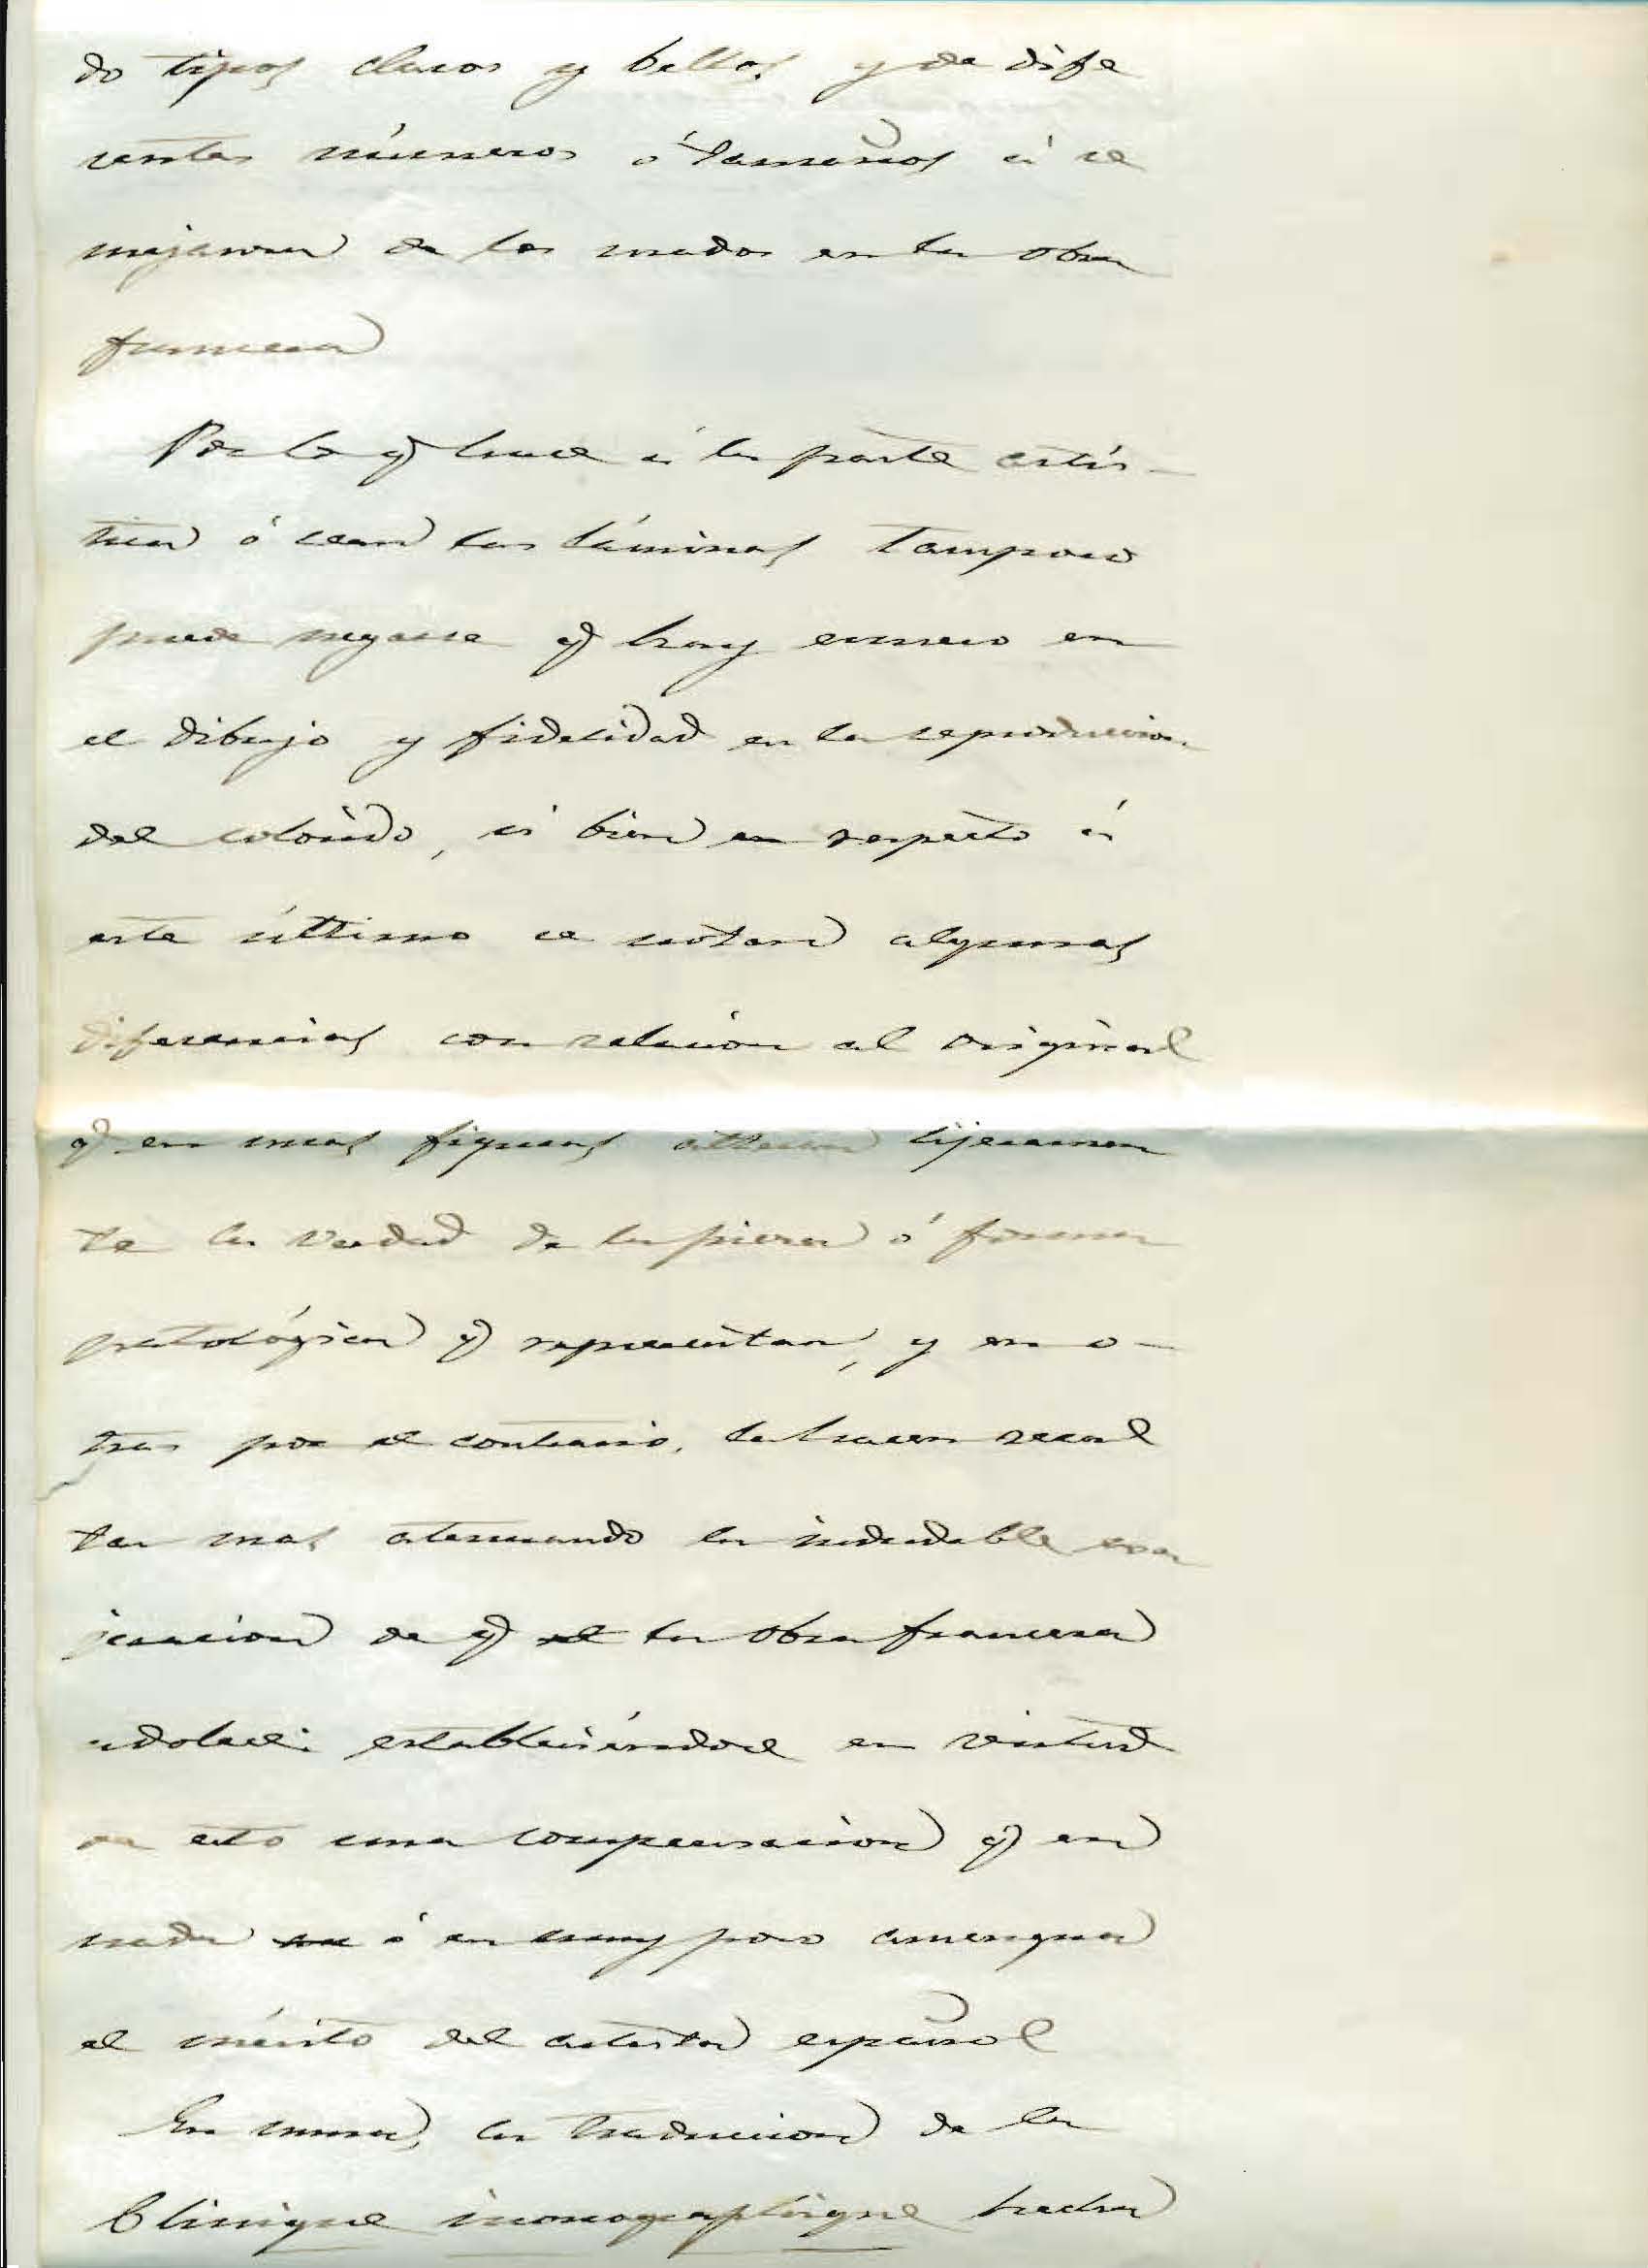 do tipos claros y bellos y de dife
rentes números ó tamaños á se
mejanza de los usados en la obra
francesa
Por lo q hace á la parte artís-
tica ó sean las láminas tampoco
puede negarse q hay esmero en
el dibujo y fidelidad en la reproduccion
del colorido, si bien en respecto á
este último se notan algunas
diferencias con relacion al original
q en unas figuras alteran lijeramen
te la verdad de la pieza ó forma
patológica q representan, y en o-
tras por el contrario, la hacen resal
tar mas atenuando la indudable exa
jeracion de q la obra francesa
adolece: estableciéndose en virtud
de esto una compensacion q en
nada ó en muy poco amengua
el mérito del artista español
En suma, la traduccion de la
Clinique iconographique hecha